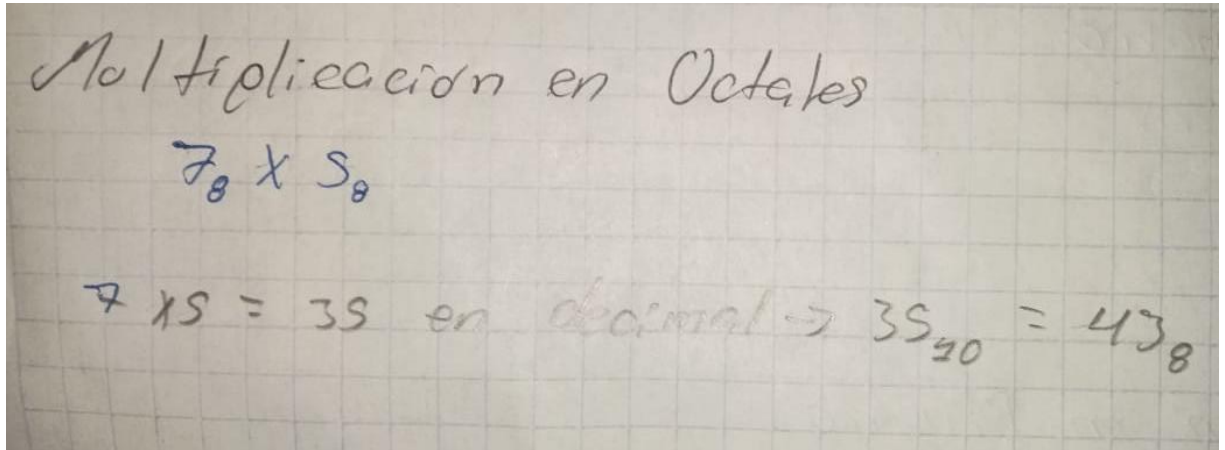 Multiplicación en Octales
7₈ x 5₈
7 x 5 = 35 en decimal → 35₁₀ = 43₈